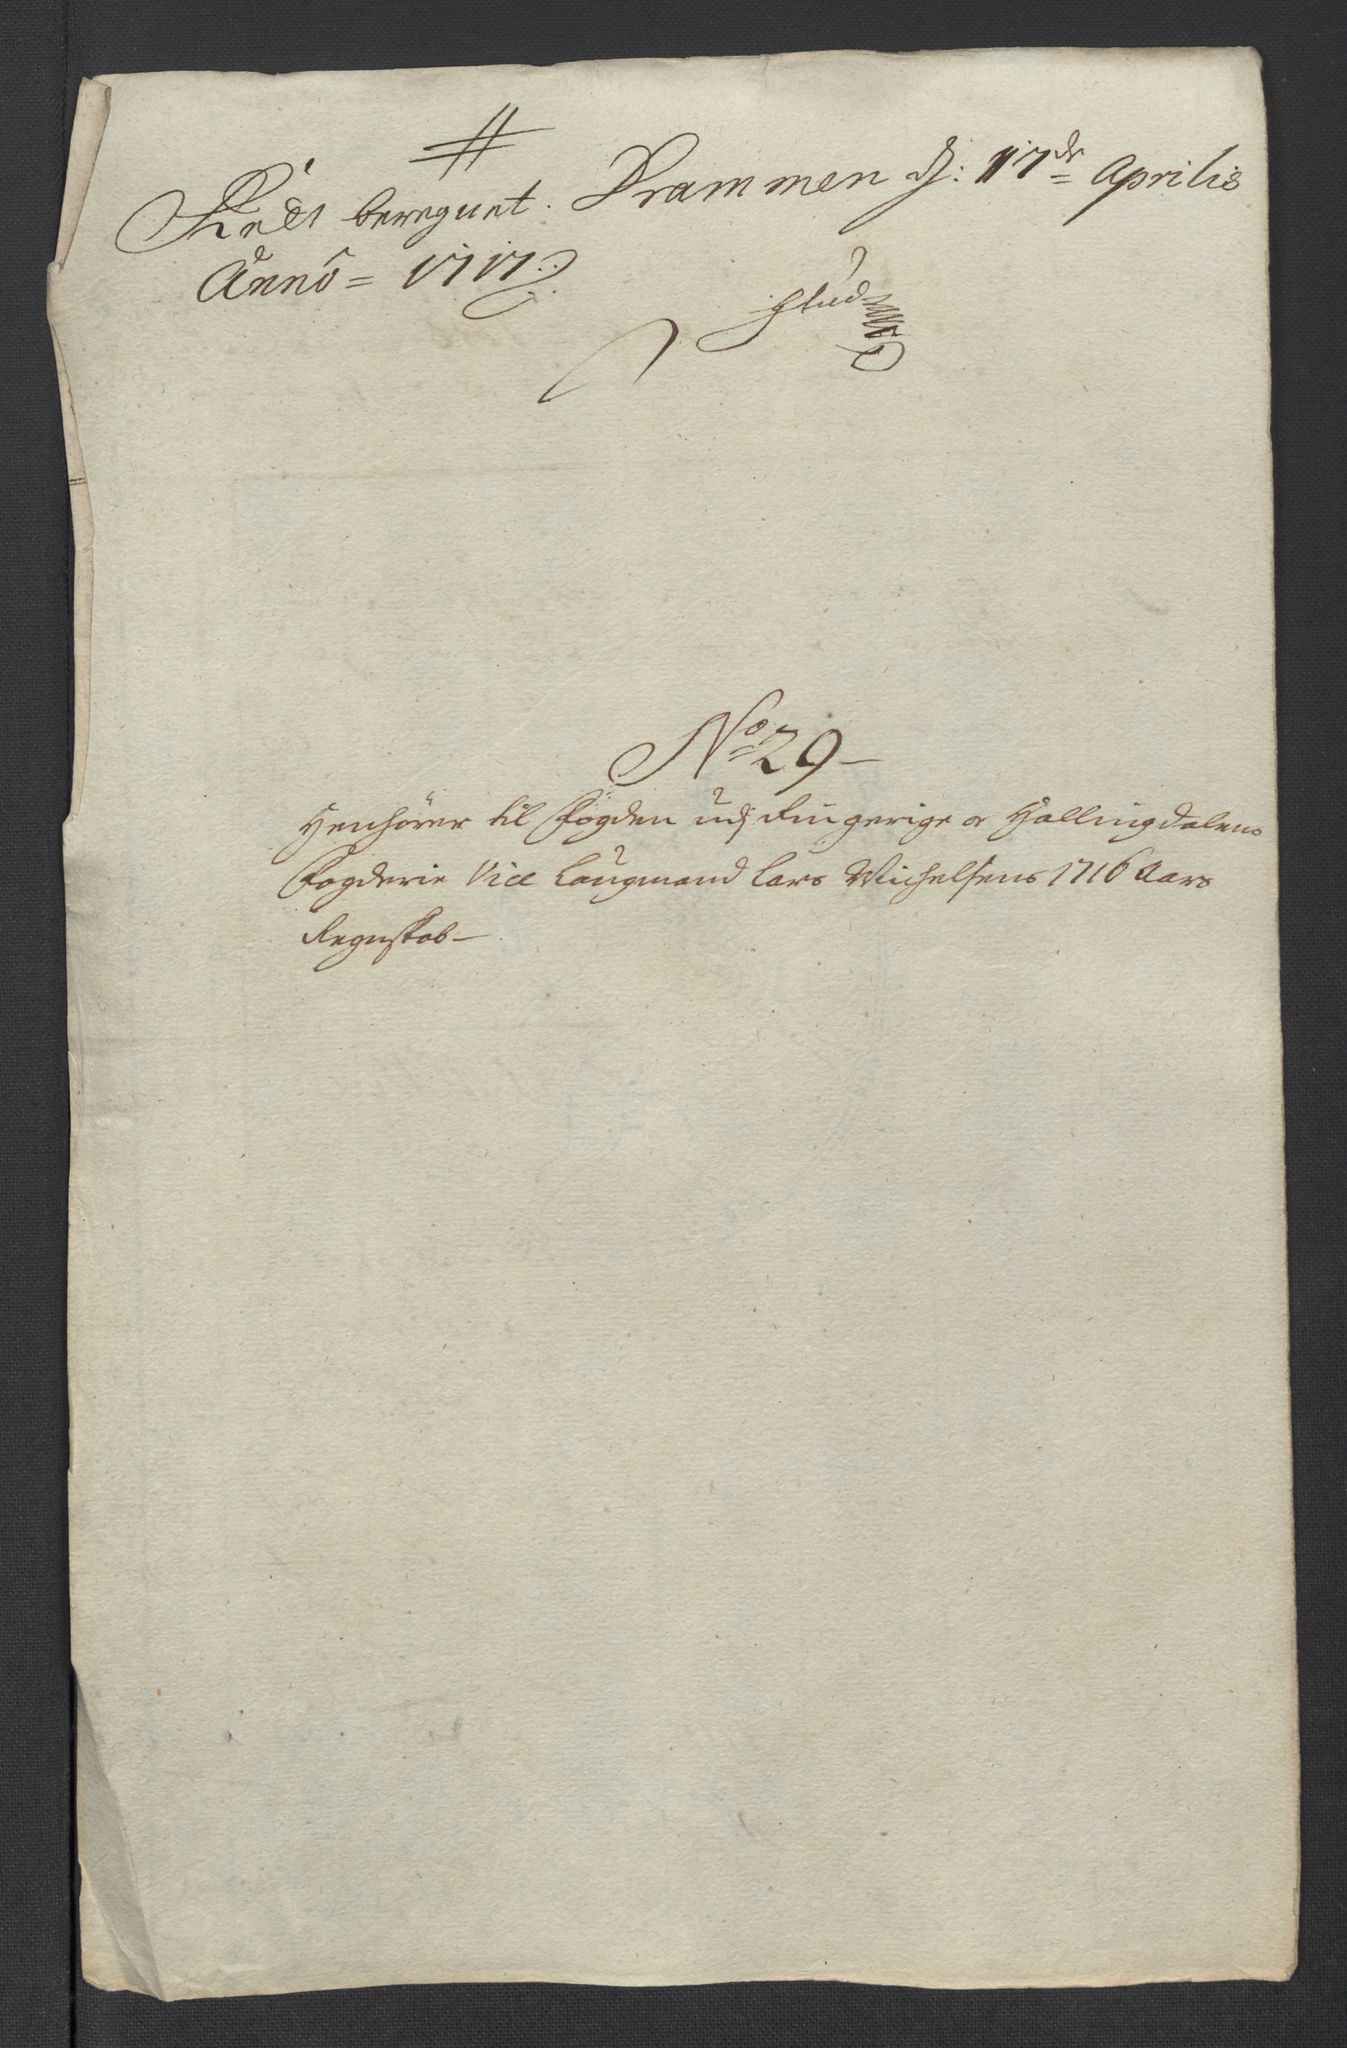 Rett beregnet. Drammen d: 17de Aprilis
Anno = 1717.
Glud
No 29
Henhörer til Fogden udj Ringerige og Hallingdalens
Fogderie Vice Laugmand Lars Michelsens 1716 Aars
Regnskab